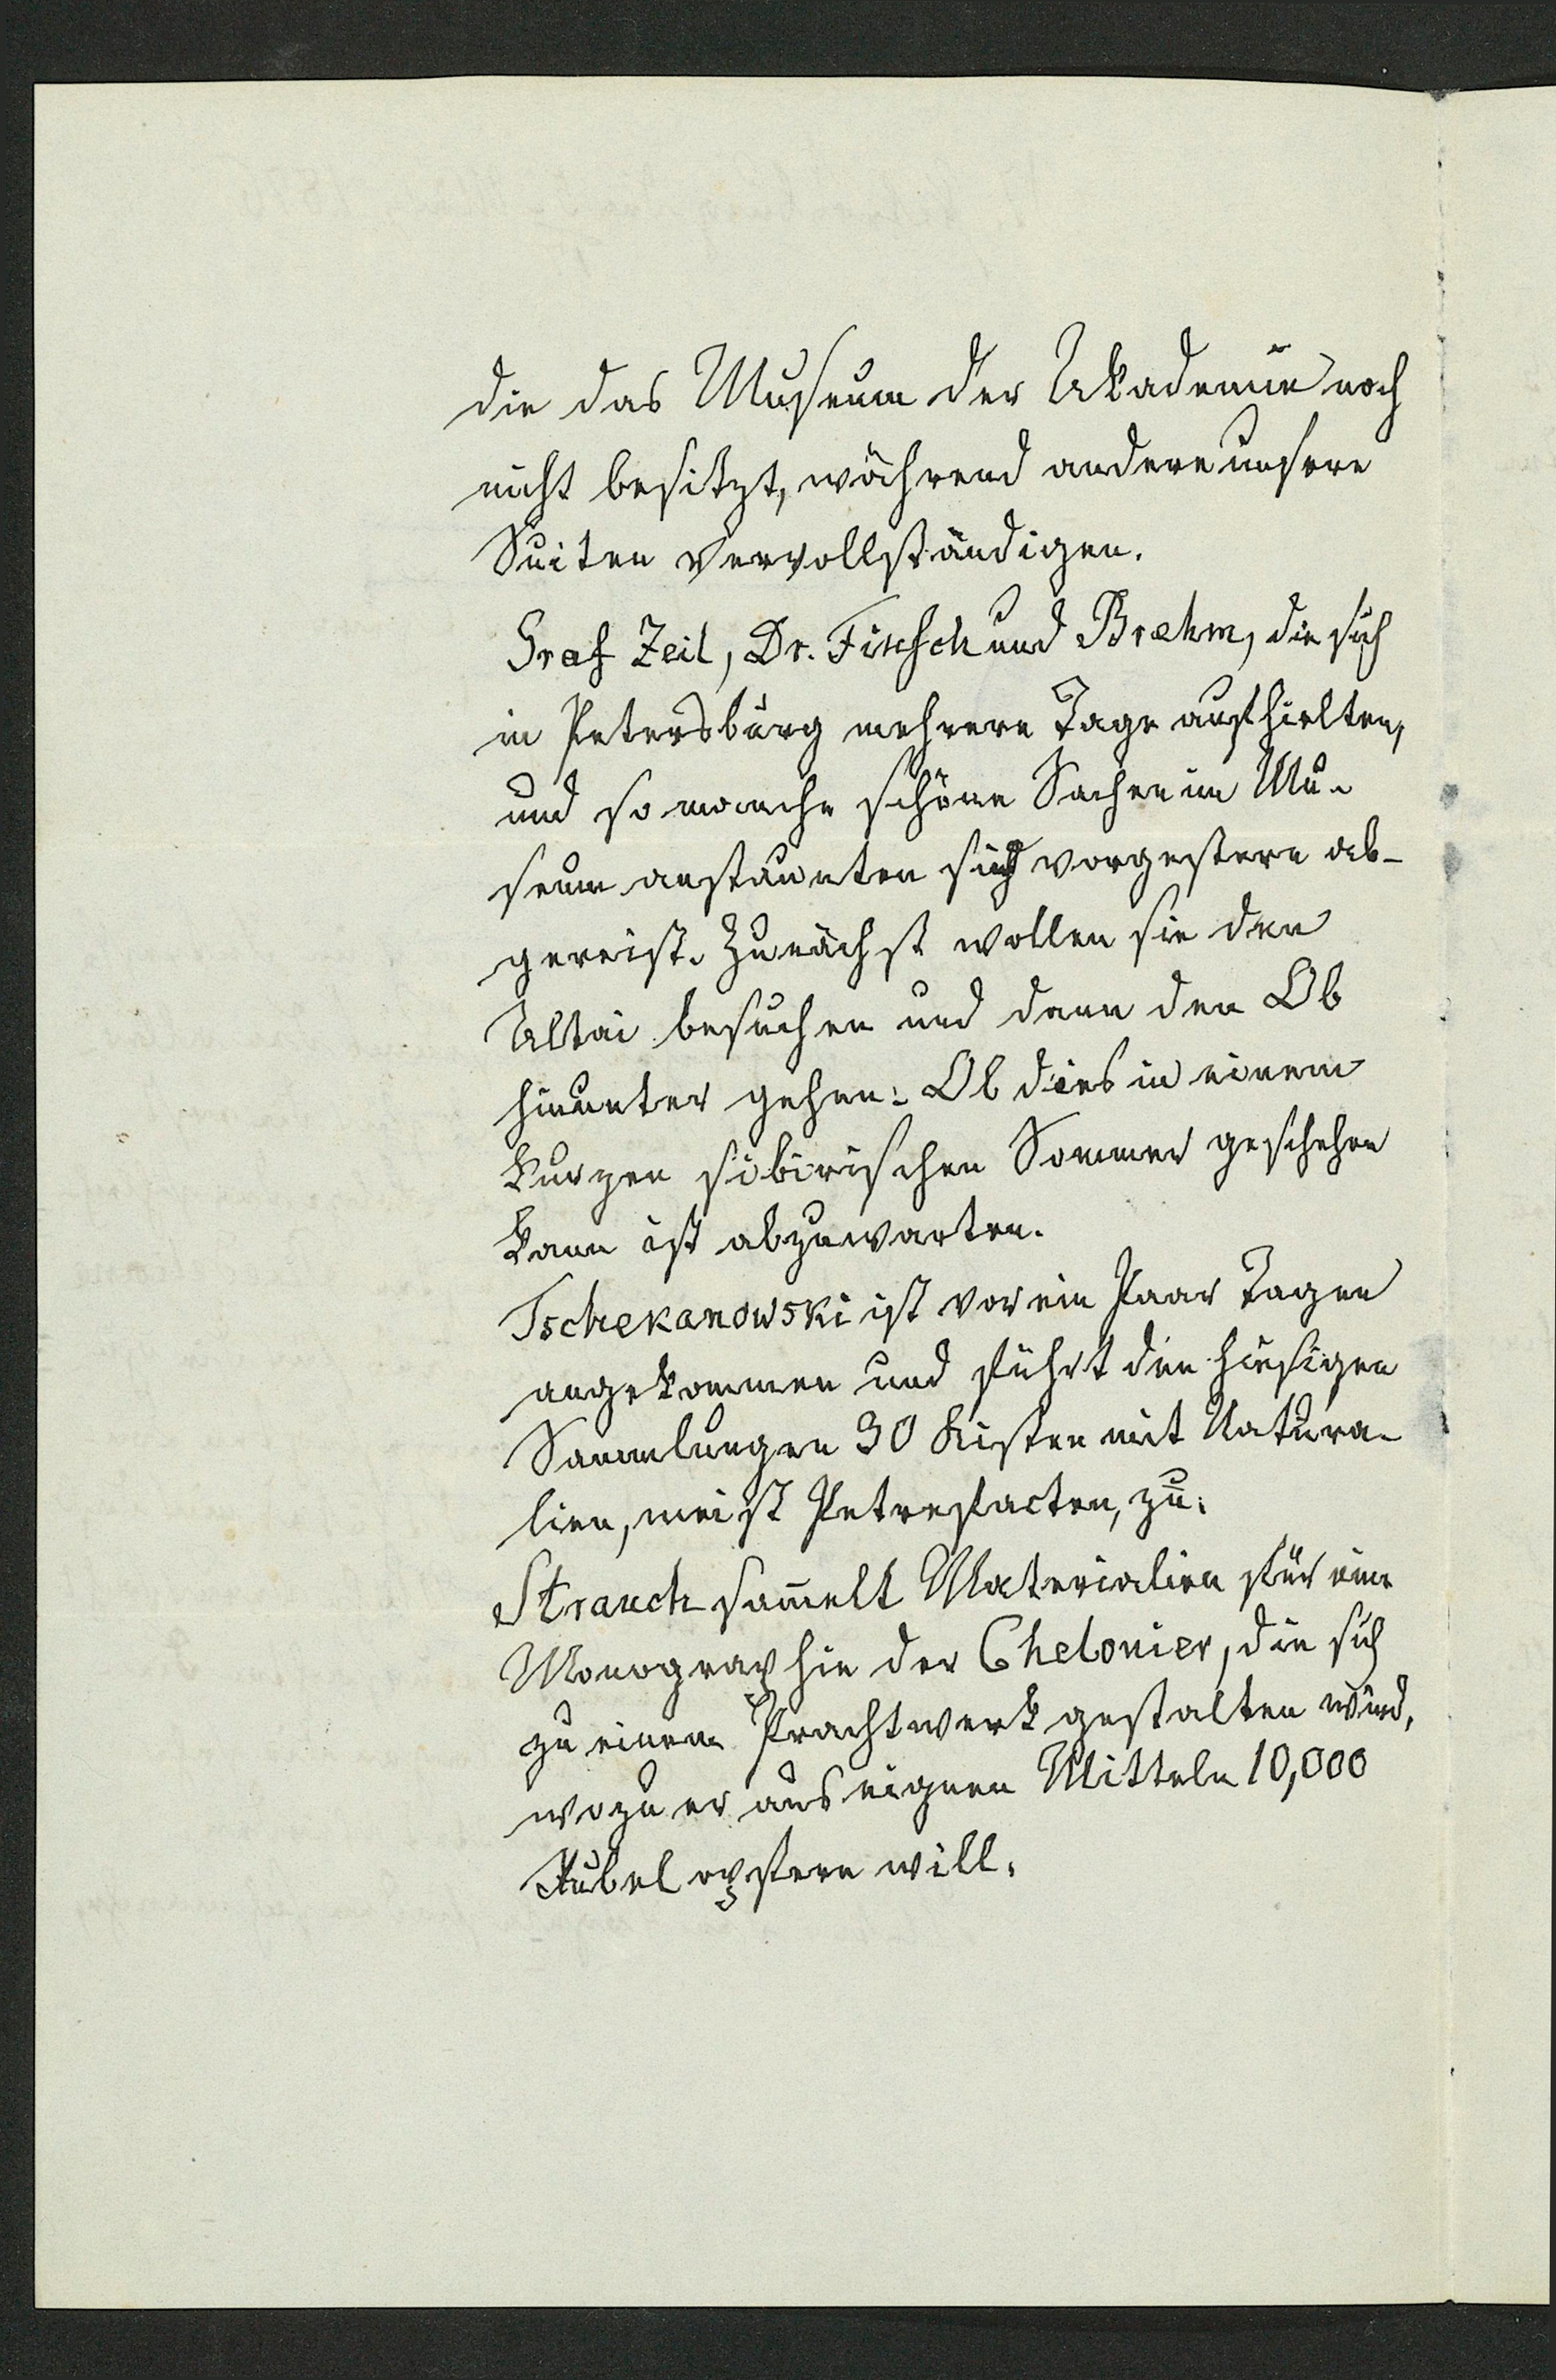 die das Museum der Akademie noch
nicht besitzt, während andere unsere
Suiten vervollständigen.
Graf Zeil, Dr. Finsch und Brehm, die sich
in Petersburg mehrere Tage aufhielten,
und so manche schöne Sachen im Mu-
seum anstaunten sind vorgestern ab-
gereist. Zunächst wollen sie den
Altai besuchen und dann den Ob
hinunter gehen. Ob dies in einem
kurzen sibirischen Sommer geschehen
kann ist abzuwarten.
Tschekanowski ist vor ein Paar Tagen
angekommen und führt den hiesigen
Sammlungen 30 Kisten mit Natura-
lien, meist Petrefacten, zu.
Strauch sam̅elt Materialien für eine
Monographie der Chelonier, die sich
zu einem Prachtwerk gestalten wird,
wozu er aus eignen Mitteln 10,000
Rubel opfern will.